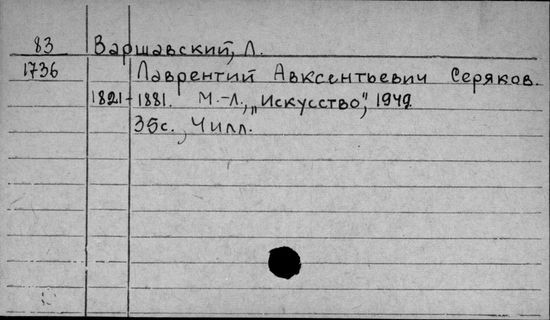 83 Варшавский, Л.
1736 Лаврентий Авксентьевич Серяков.
1821-1881. М.-Л., „Искусство", 1949.
35с., Чилл.